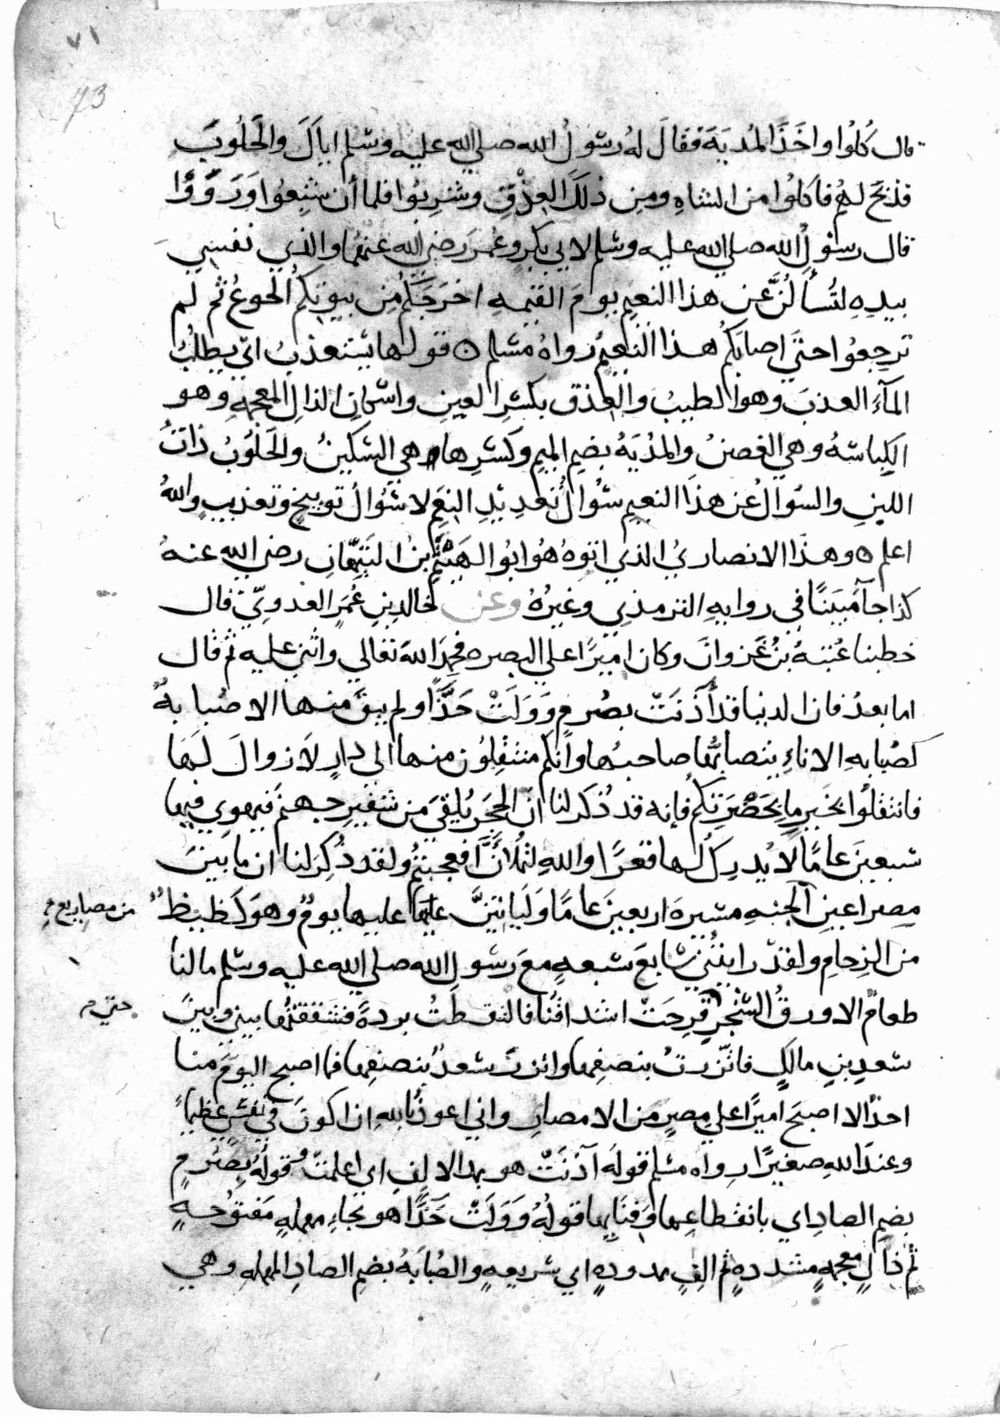 ٧١
73
قال كُلُوا واخَذَ المُديَةَ فقالَ لهُ رسُولُ الله صلى الله عليه وسَلم اياكَ والحَلُوبَ
فذبحَ لهُم فاكلُوا من الشاهِ ومِن ذلكَ العِذْقِ وشرِبُوا فلما أن شبِعُوا وَرَوُوْا
قال رسُولُ الله صلى الله عليه وسَلم لابي بكرٍ وعُمرَ رضي الله عنهُما والذي نفسِي
بيدِهِ لتُسأَلُنَّ عن هذا النعيمِ يومَ القيمهِ اخرَجَكُم مِن بيُوتِكُم الجوعُ ثم لم
ترجِعُوا حتَى اصابَكُم هذا النعيمُ رواهُ مسلم ه قولها يستعذِبُ ايْ يطلبُ
المآءَ العذبَ وهوا لطيبُ والعِذق بكسْرِ العينِ واسْكانِ الذالِ المعجمهِ وهو
الكِباسَهُ وهي الغصنُ والمُدْيَهُ بضمِ الميمِ وكسرِها هي السِّكينُ والحَلُوبُ ذاتُ
اللبنِ والسُؤالُ عن هذا النعيمِ سُؤالُ تعدِيدِ النِعَمِ لا سُؤالُ توبيخٍ وتعذيبٍ واللهُ
اعلم ه وهذا الانصاريُ الذي اتوهُ هُوَ ابُو الهَيْثَمِ بنُ التَيِّهانِ رضي الله عنهُ
كذا جآ مُبَينًا في روايهِ الترمذي وغيرُهُ وعن خالدِ بنِ عُمَرٍ العَدويِّ قال
خطبنا عُتبَهُ بنُ غَزوانَ وكان اميرًا علي البصره فحمِدَ اللهَ تعَالي واثنى عليهِ ثم قال
اما بعدُ فان الدنيا قد آذَنَتْ بصُرمٍ وَوَلَتْ حَذَّآ ولم يبقَ منها الا صُبابهٌ
كصُبابهِ الاناءِ يتصابُّها صاحبُها وانكُم منتقِلُون منها الى دارٍ لا زوالَ لهَا
فانتقلُوا بخيرِ ما بحَضْرَتِكُم فإنه قد ذُكر لنا انّ الحجَرَ يُلقَي مِن شفيرِ جهنمَ فيهوِي فيها
سبعينَ عامًا لا يُدرِكُ لها قعرًا واللهِ لتُملأَنَّ افعجِبتُم ولقد ذُكِرَ لنا ان ما بينَ
مِصراعينِ الجنهِ مسِيرهَ اربعينَ عامًا وَلَياتيَنَّ عليها عليها يومٌ وهوَ كظيظٌ
من مصاريع
من الزِحامِ ولقد رايتُني سَابعَ سَبعهٍ معَ رسُولِ الله صلى الله عليه وسَلم ما لنا
طعامٌ الا ورقُ الشجرِ قرِحَتْ اشداقُنا فالتقطتُ بردهً فشققتُها بيني وبينَ
حتى
سَعدِ بنِ مالكٍ فاتّزرتُ بنصفِها واتزرَ سَعدٌ بنصفِها فما اصبح اليومَ منا
احدٌ الا اصبحَ اميرًا علي مِصرٍ من الامصارِ واني اعوذُ بالله ان اكونَ في نفسِي عظيمًا
وعندَ اللهِ صغيرًا رواه مسلم قوله آذَنَتْ هو بمدِ الالِفِ اي اعلمَتْ وقولُهُ بِصُرمٍ
بضمِ الصادِ اي بانقطاعِها وَفنَايِها قولُهُ وَوَلَتْ حَذَّا هو بحاءٍ مهملهٍ مَفتُوحهٍ
ثم ذالٍ معجمهٍ مشددهٍ ثم الفٍ ممدودهٍ اي سَريعهٍ والصُبَابَهُ بضمِ الصادِ المهملهِ وهي